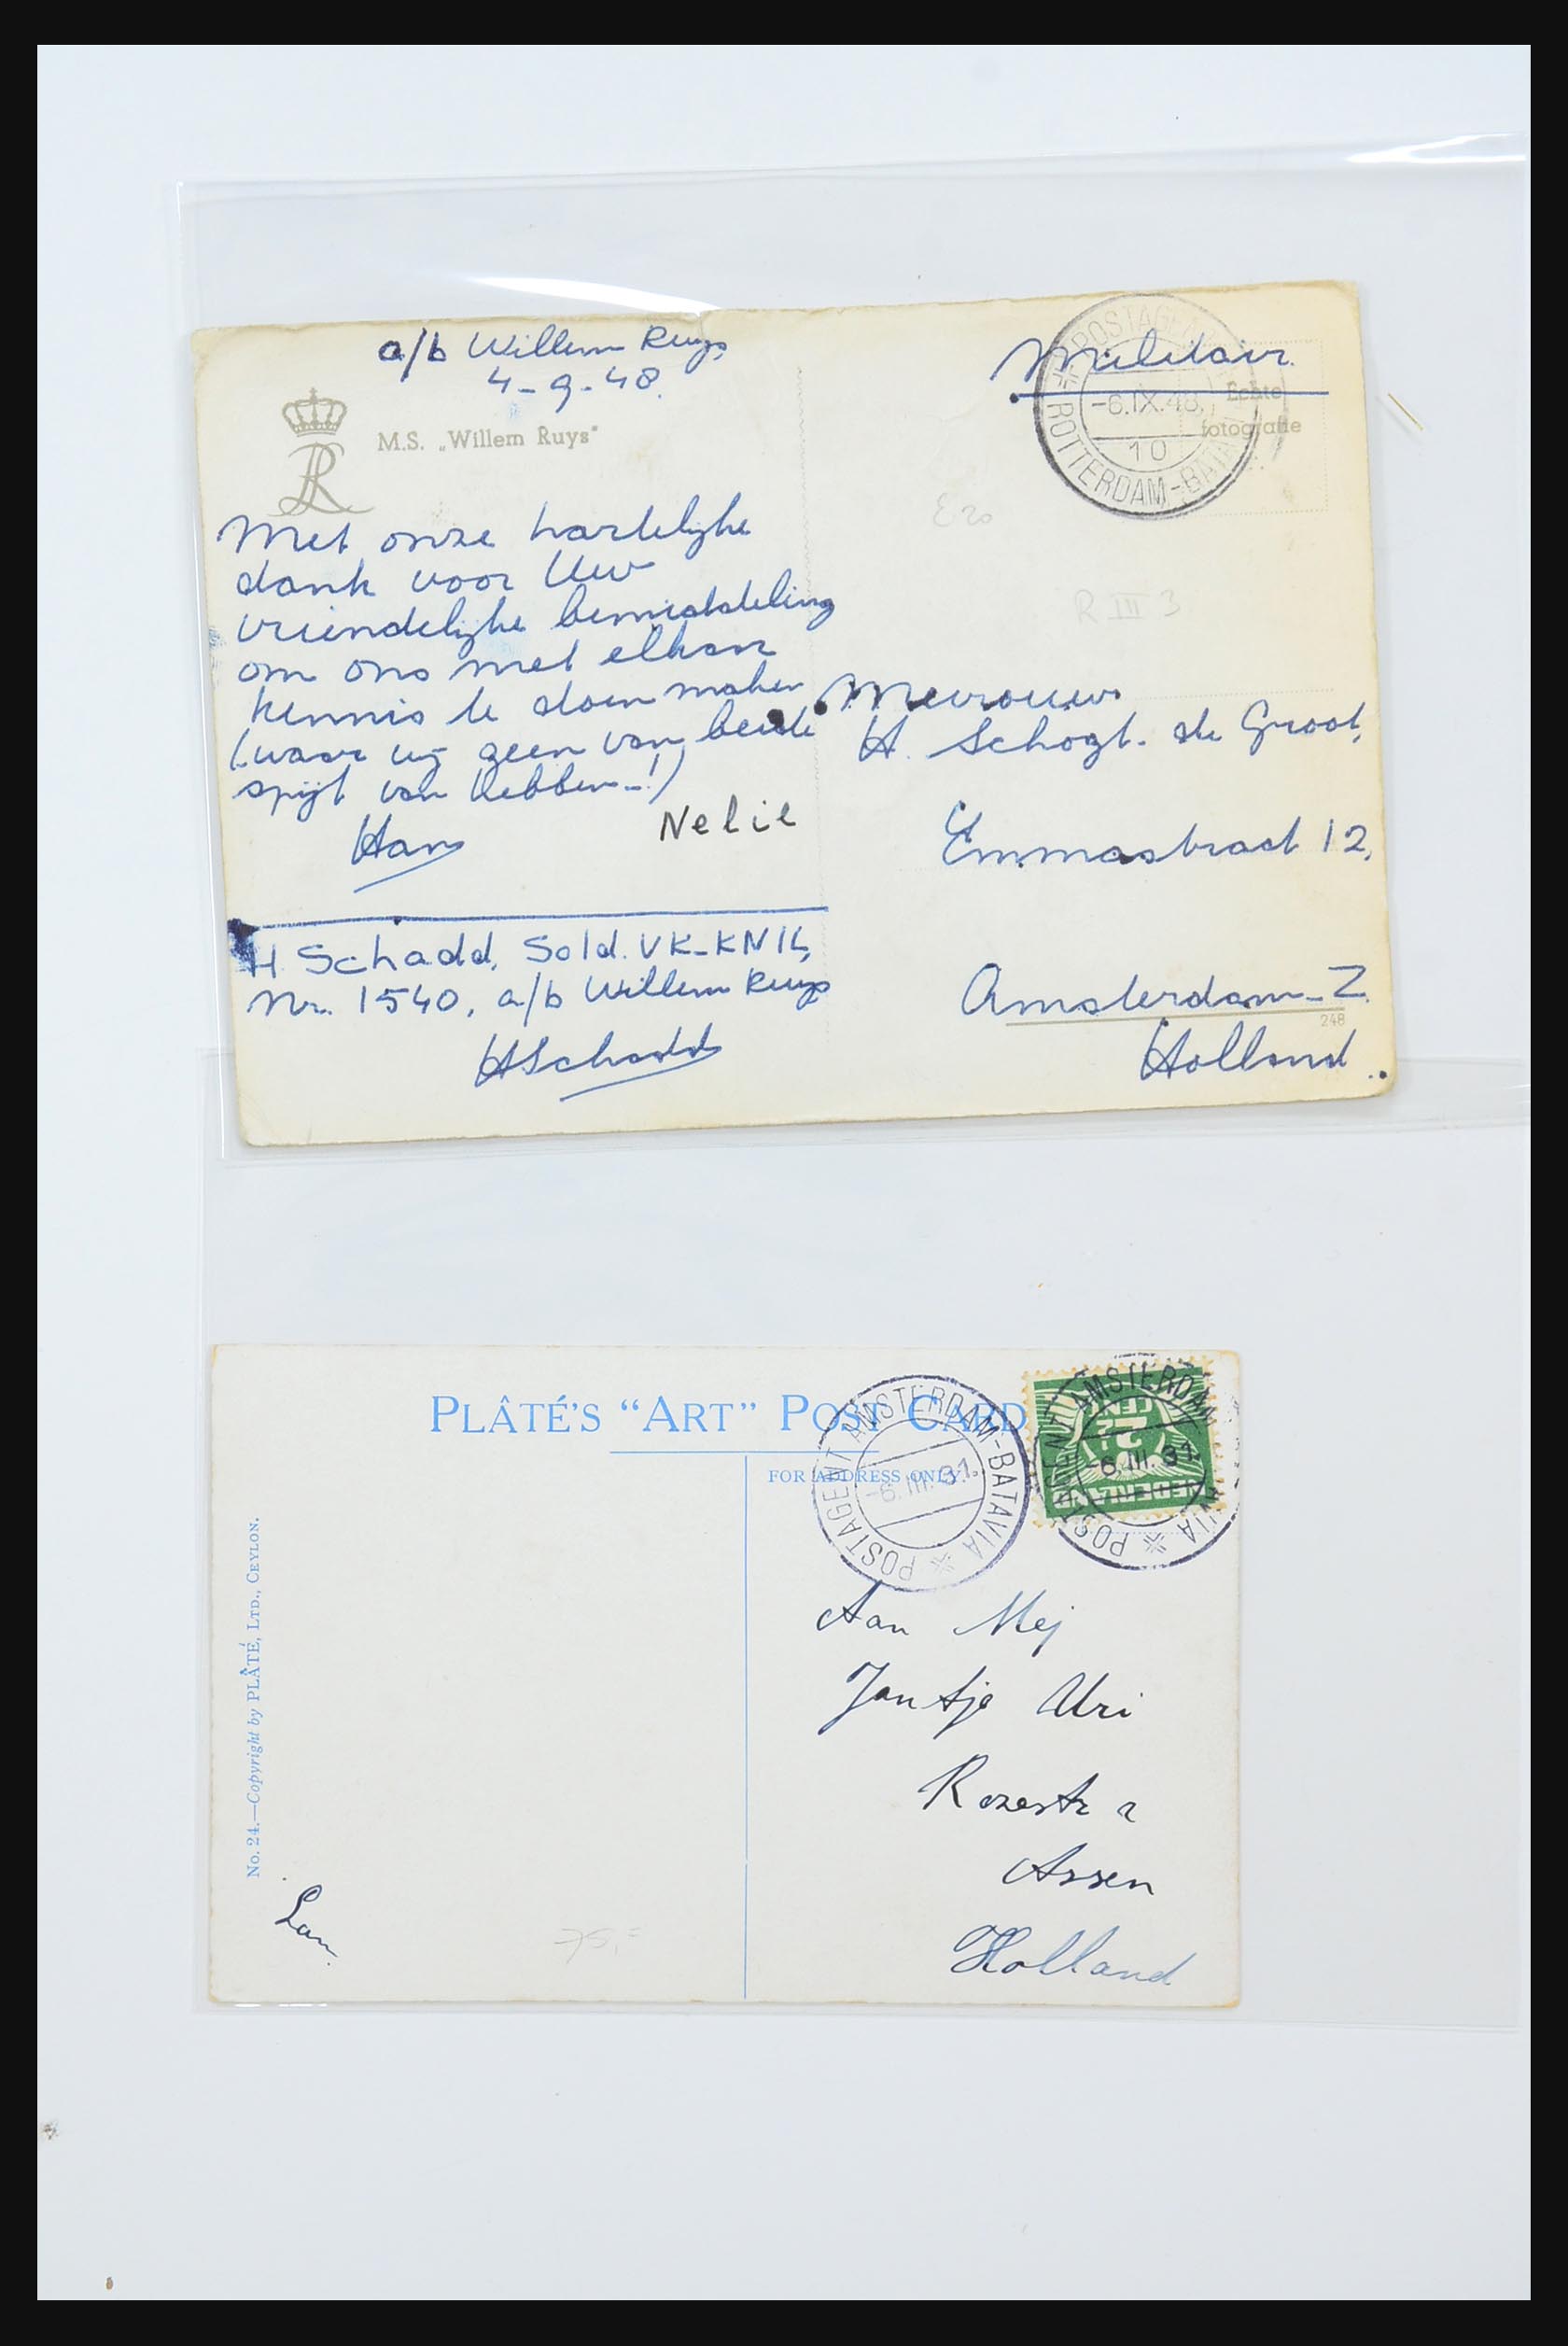 a/b Willem Ruys
4-9-48.
M.S. „Willem Ruys"
Met onze hartelijke
dank voor Uw
vriendelijke bemiddeling
om ons met elkaar
kennis te doen maken
(waar wij geen van beide
spijt van hebben-!)
Han
Nelie
H Schadd, Sold. VK-KNIL,
Nr. 1540, a/b Willem Ruys
HSchadd
Militair.
POSTAGENT
-6.IX.48.
10
ROTTERDAM-BATAVIA
Echte
fotografie
E20
R III 3
Mevrouw
H. Schogt. de Groot,
Emmastraat 12,
Amsterdam-Z
248
Holland.
PLÂTÉ'S "ART" POST CARD
FOR ADDRESS ONLY.
POSTAGENT AMSTERDAM-BATAVIA
-6.III.31.
POSTAGENT AMSTERDAM-BATAVIA
-6.III.31.
NEDERLAND
2½
CENT
No. 24.—Copyright by PLÂTÉ, LTD., CEYLON.
Aan Mej
Jantje Uri
Rozestr a
Assen
Holland
75,=